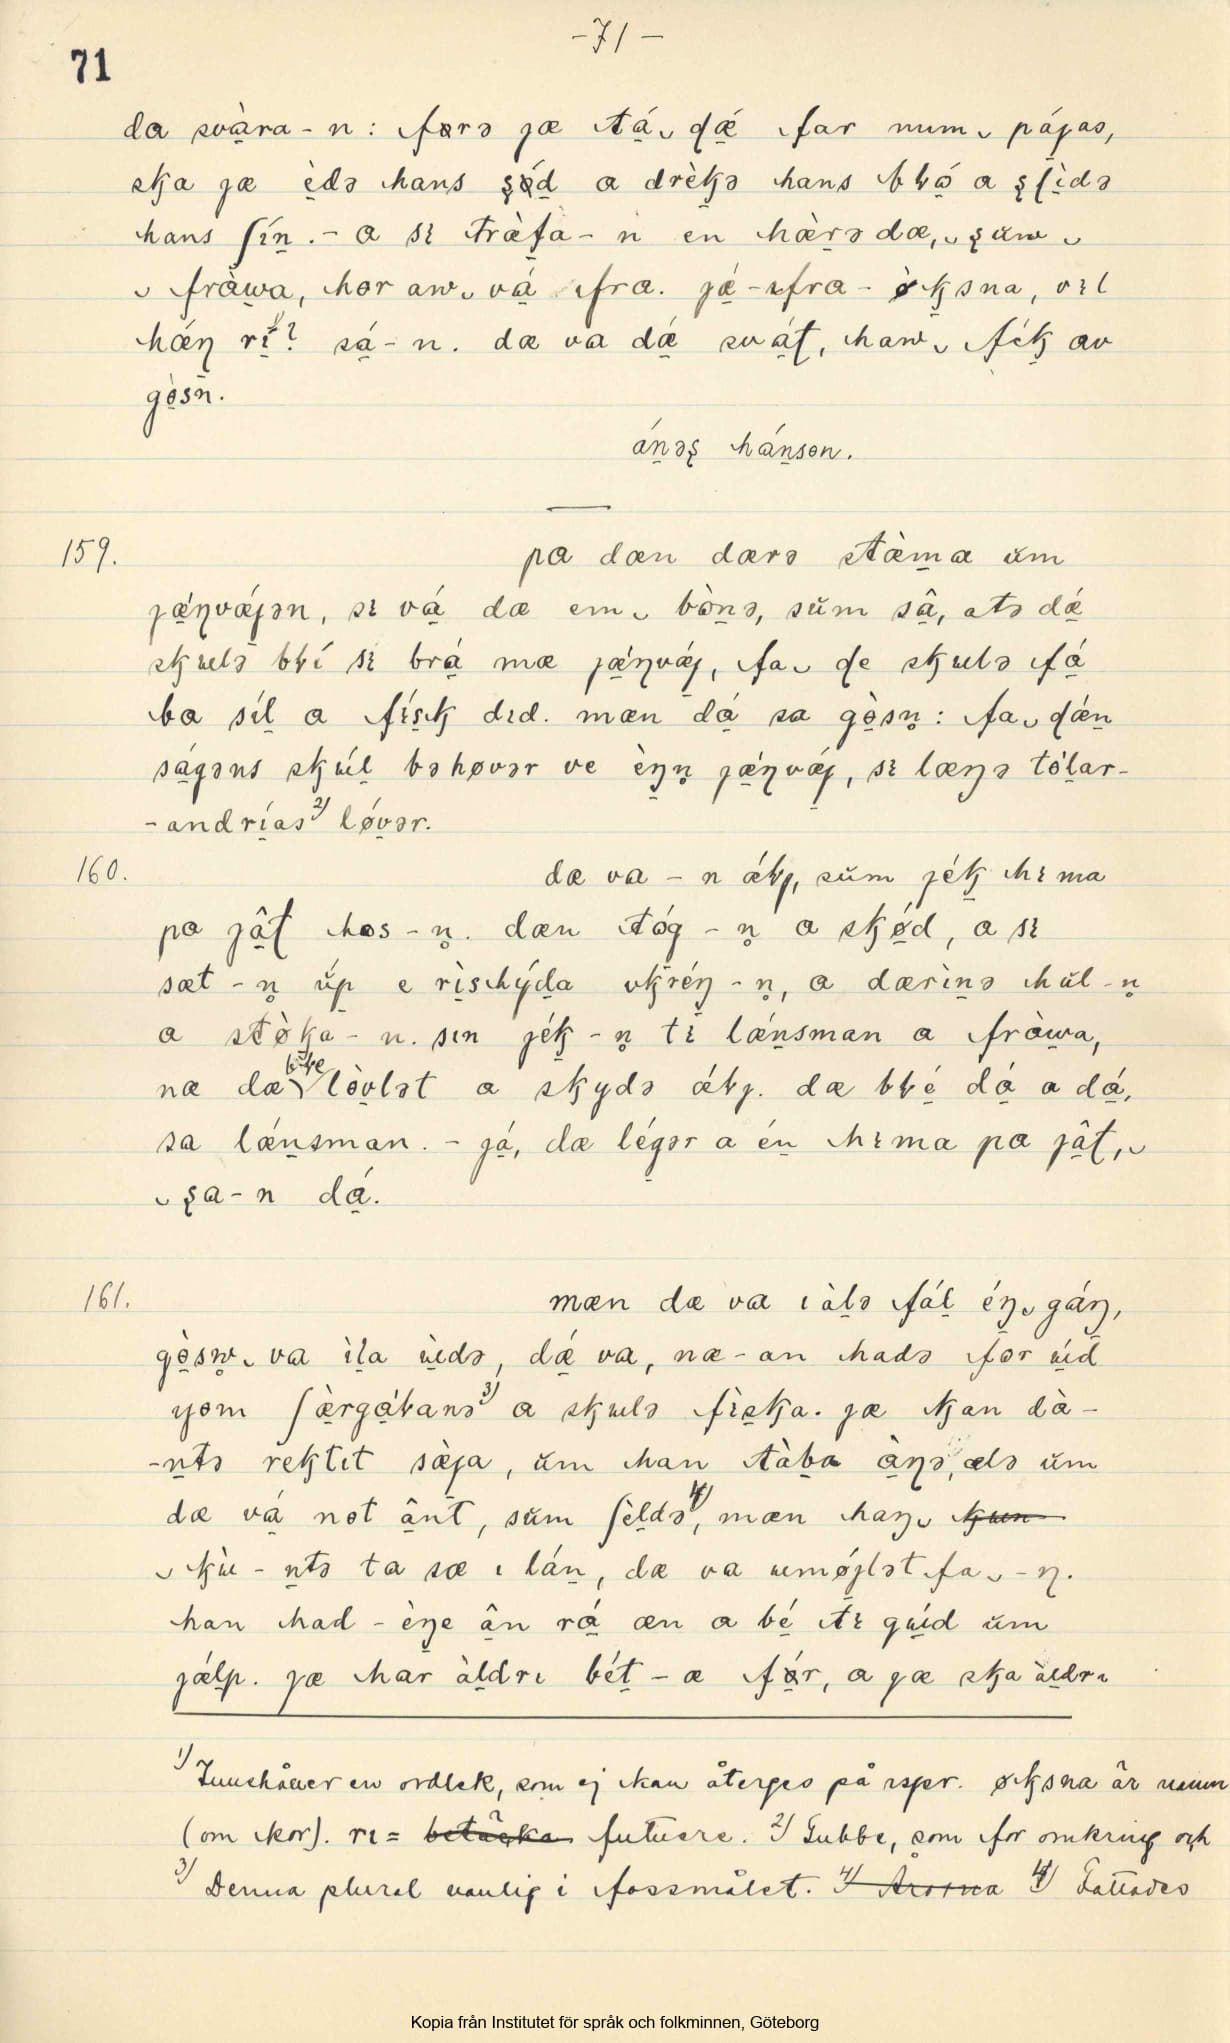 -71-
71
da svàra-n: førə jæ tá̱ ˬ dǽ̱ far num ˬ pájas,
ska jæ è̱də hans ʂø̱d a drèkə hans blá a ʂlìdə
hans ʃíṉ. - a sɪ tràfa-n en hæ̀rə dæ, ˬ ʂŭm ˬ
ˬ fràwa, hor aw ˬ vá̱ fra. jǽ̱-fra-ø̀ksna, vɪl
hǽŋ rí¹⁾? sá̱-n. dæ va dǽ svá̱ʈ, haw ˬ fék av
gò̱sn̥.
án̠əʂ hán̠sən.
159.
pa dæn dærə stàma ŭm
jǽ̱ŋvǽjən, sɪ vá̱ dæ em ˬ bò̱nə, sŭm sâ̱, atə dǽ
skɯlə blí sɪ brá̱ mæ jǽ̱ŋvǽj, fa ˬ de skɯlə fá̱
ba síl̠ a físk dɪd. mæn dá̱ sa gò̱sn̥: fa ˬ dǽn̠
ságəns skɯ́l̠ bəhøvər ve èŋn̥ jǽ̱ŋvǽj, sɪ læŋə tòl̠ar-
-andrías²⁾ lǿvər.
160.
dæ va-n ǽlj, sŭm jék hɪma
pa jâ̱ʈ hos-n̥. dæn tóg-n̥ a skǿd, a sɪ
sæt-n̥ ŭ́p e rìshýda vkréŋ-n̥, a dærìn̠ə hŭl-n̥
a stø̀ka-n. sɪn jék-n̥ tɪ lǽnsman a fràwa,
næ dæ blɪe lòvlət a skydə ǽlj. dæ blé dá̱ a dá̱,
sa lǽnsman. - já̱, dæ légər a én̠ hɪma pa jâ̱ʈ, ˬ
ˬ ʂa-n dá̱.
161.
mæn dæ va ɪ àl̠ə fál̠ éŋ ˬ gáŋ,
gò̱sw̥ ˬ va ìl̠a ɯ̀də, dǽ va, næ-an hadə for ɯ́d
yom ʃæ̀rgá̱lanə³⁾ a skɯlə fìska. jæ kan dà-
-n̠tə rektɪt sæ̀ja, ŭm han tàba àŋə, ælə ŭm
dæ vá̱ not ânt, sŭm ʃèldə⁴⁾, mæn haŋ ˬ kɯn
ˬ kɯ̀-n̠tə ta sæ ɪ lán̠, dæ va ɯmø̀jlət fa ˬ -ŋ.
han had-èŋe ân rá̱ æn a bé tɪ gɯ́d ŭm
jǽlp. jæ har àldrɪ bét-æ fǿr, a jæ ska àldrɪ
¹⁾ Innehåller en ordlek, som ej kan återges på rspr. øksna är namn
(om kor). rɪ = betäcka futuere. ²⁾ Gubbe, som for omkring och
³⁾ Denna plural vanlig i forsmålet. ⁴⁾ ⁴⁾ Fattades
Kopia från Institutet för språk och folkminnen, Göteborg